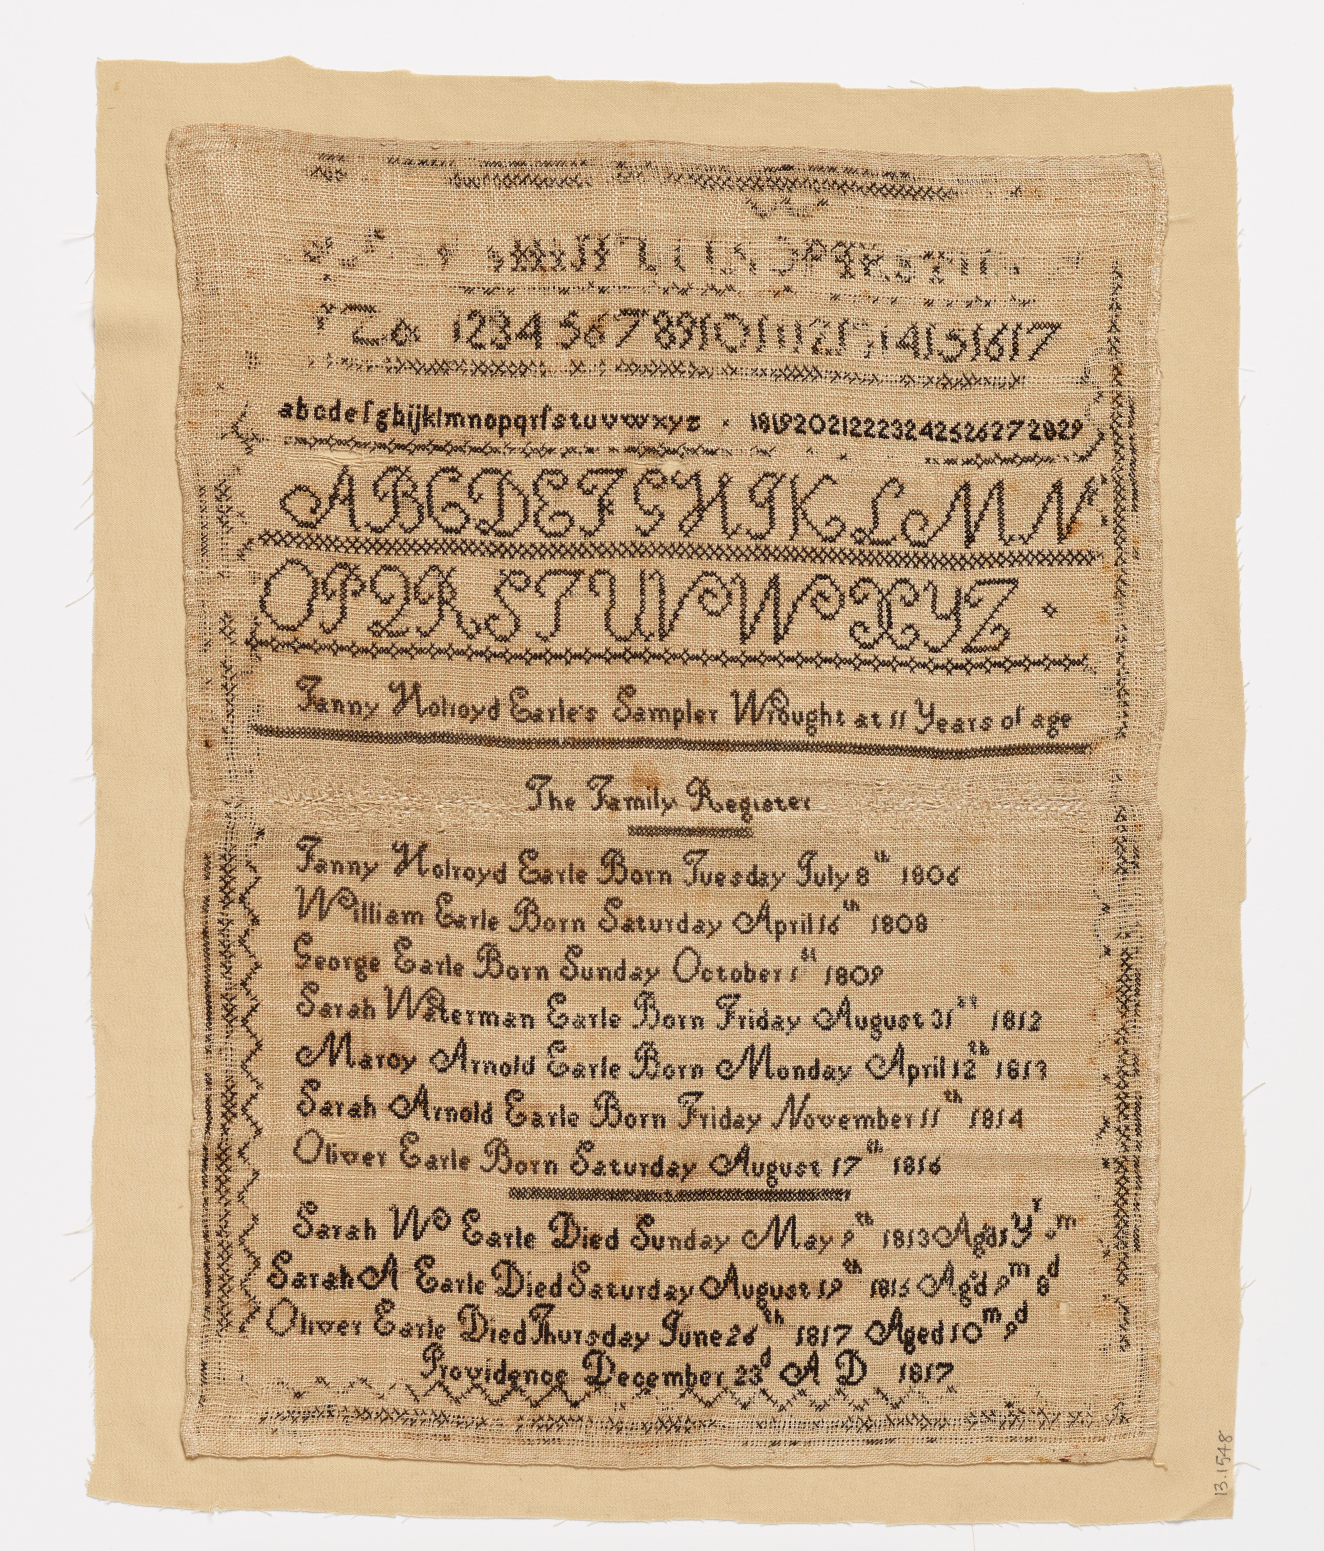 L M N O P Q R S T
Y Z & 1 2 3 4 5 6 7 8 9 10 11 12 13 14 15 16 17
a b c d e f g h i j k l m n o p q r ſ s t u v w x y z 18 19 20 21 22 23 24 25 26 27 28 29
A B C D E F G H I K L M N
O P Q R S T U V W X Y Z
Fanny Holroyd Earle's Sampler Wrought at 11 Years of age
The Family Register
Fanny Holroyd Earle Born Tuesday July 8th 1806
William Earle Born Saturday April 16th 1808
George Earle Born Sunday October 1st 1809
Sarah Waterman Earle Born Friday August 31st 1812
Marcy Arnold Earle Born Monday April 12th 1813
Sarah Arnold Earle Born Friday November 11th 1814
Oliver Earle Born Saturday August 17th 1816
Sarah W Earle Died Sunday May 9th 1813 Agd 1 yr 9m
Sarah A Earle Died Saturday August 19th 1815 Ag'd 9m 8d
Oliver Earle Died Thursday June 26th 1817 Aged 10m 9d
Providence December 23d A D 1817
13.1548